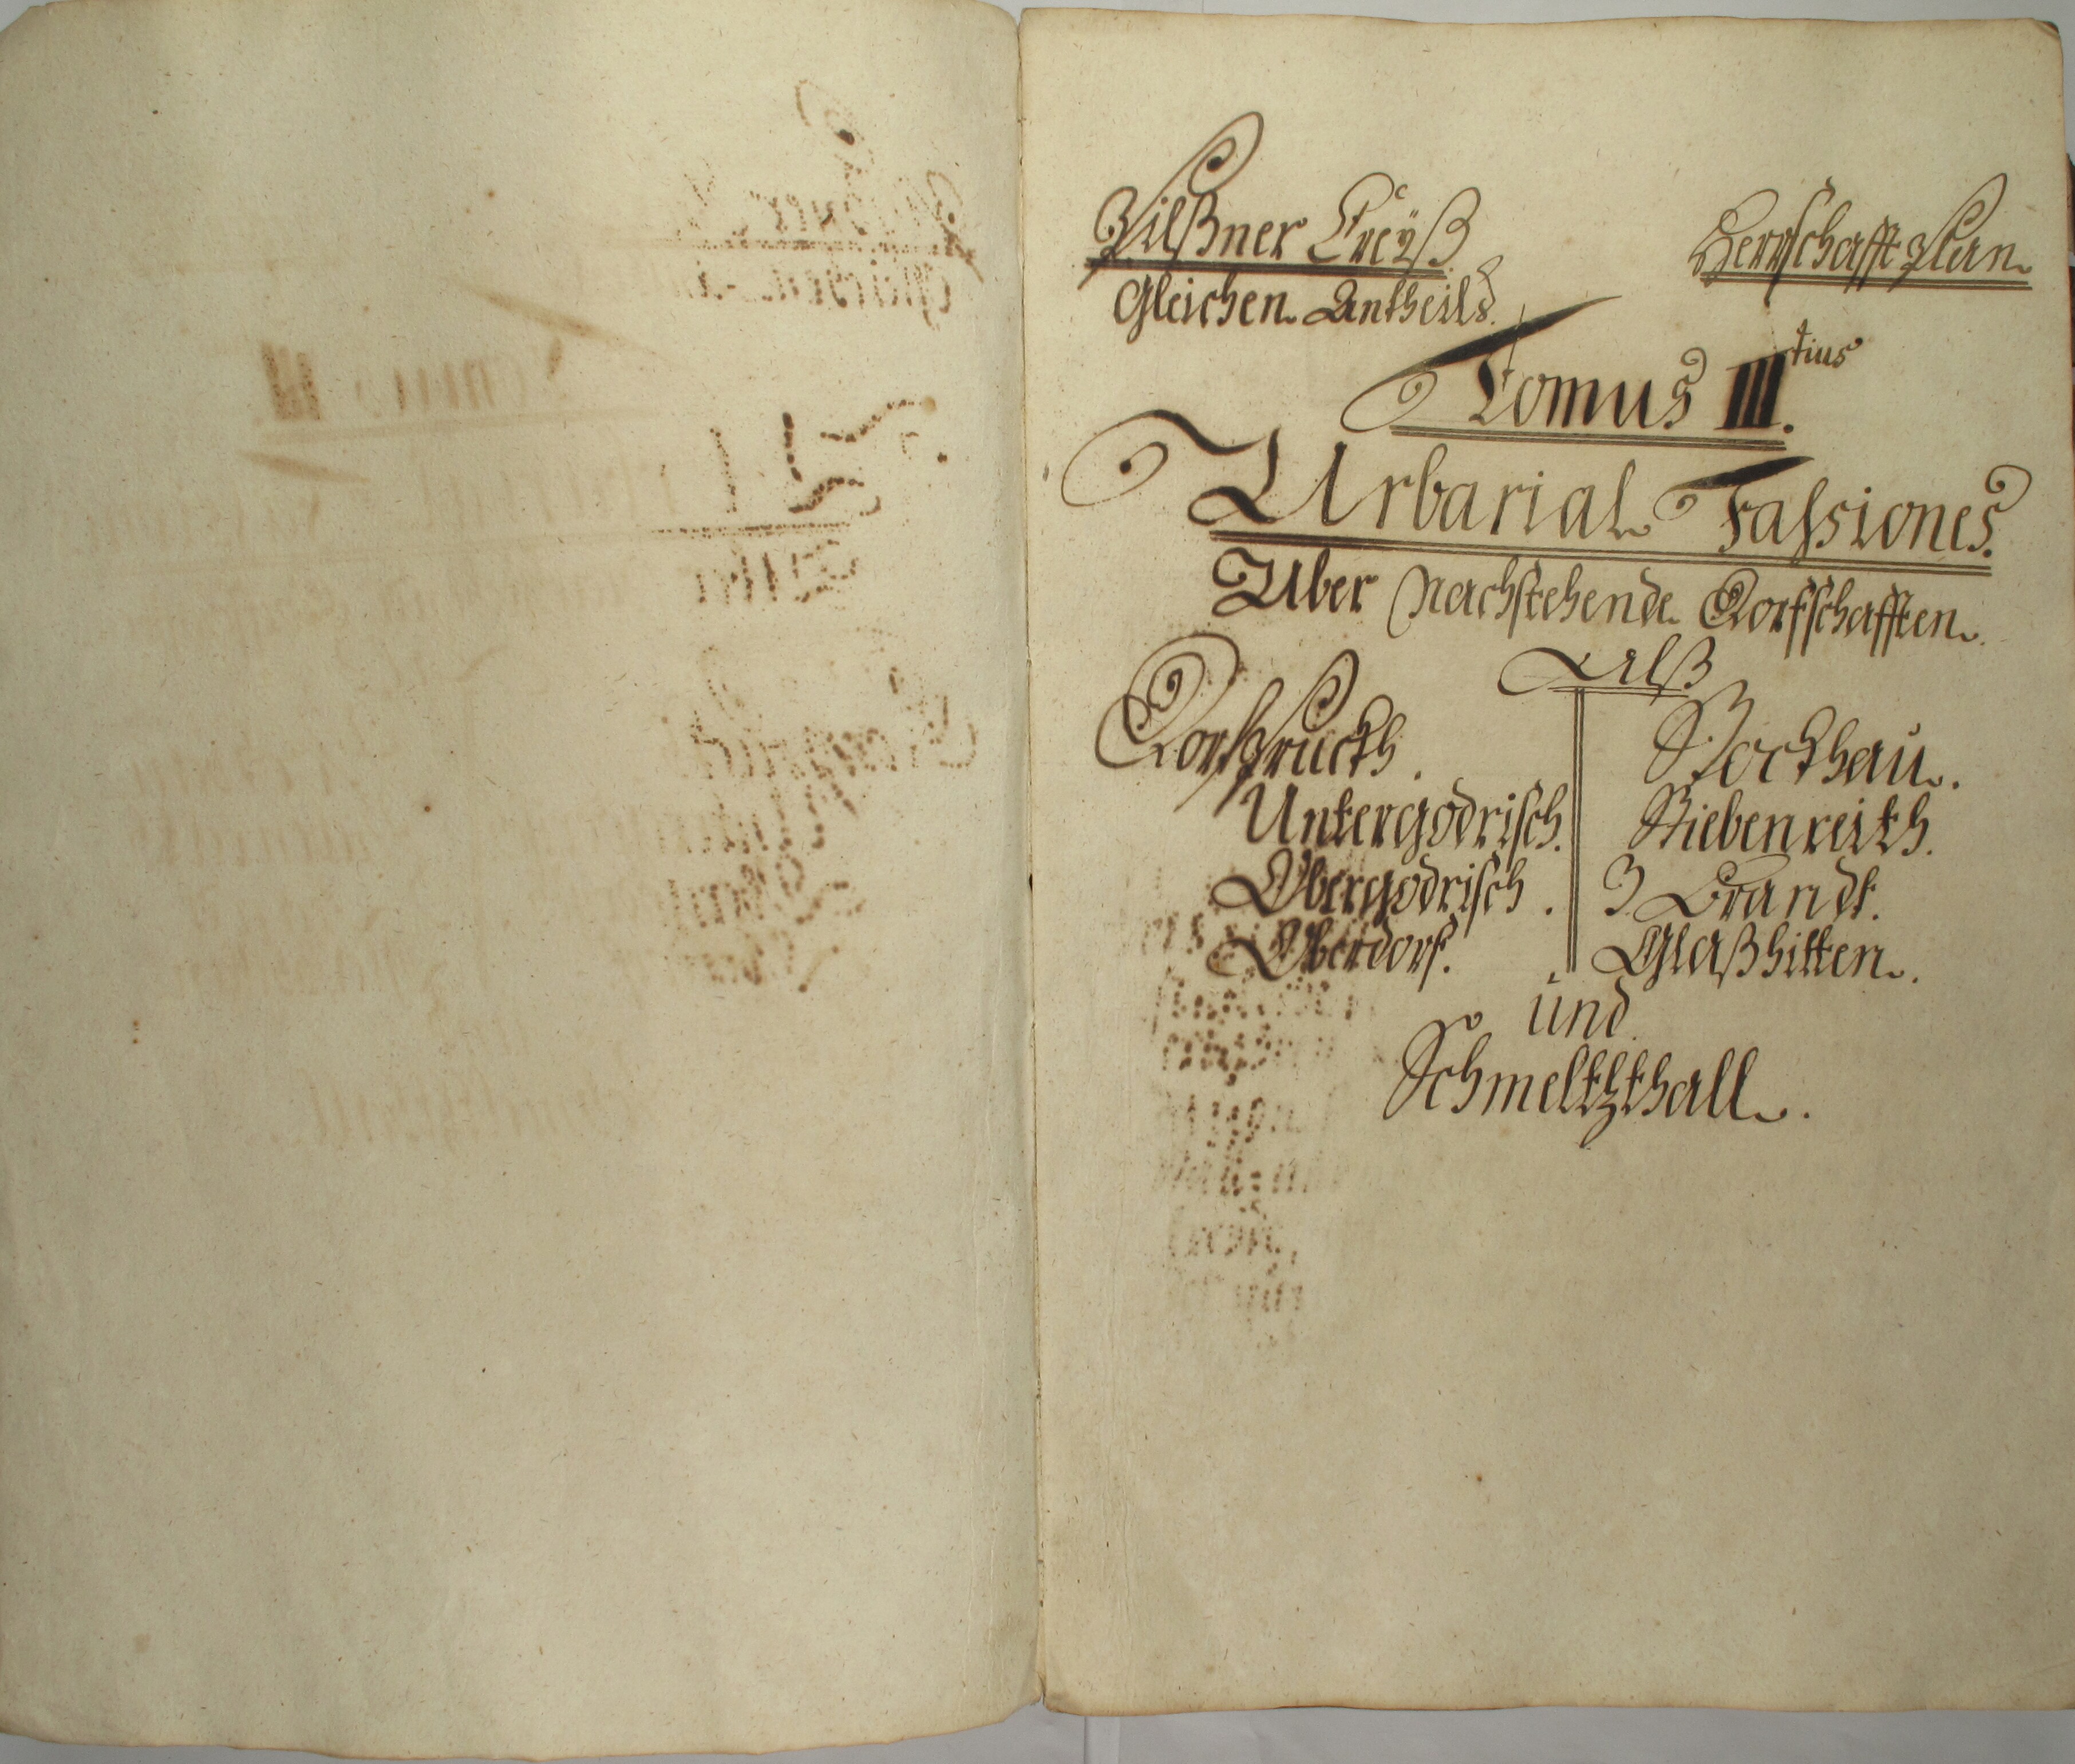 Pilßner Creÿß
Herrschafft Plan
Gleichen Antheils.
Tomus III.tius
Urbarial Fassiones.
Uber Nachstehende Dorfschafften
Alß
Dorf
Untergodrisch.
Obergodrisch.
Oberdorf.
Stockhau.
Siebenreith.
3. Brandt.
Glaßhitten.
und
Schmeltzthall.